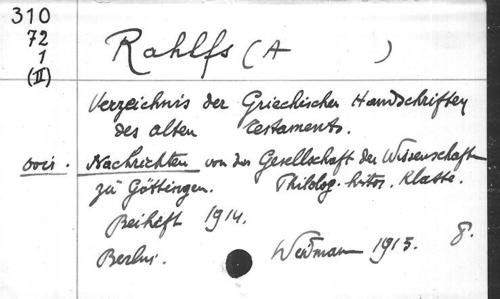 310
72
1
(II)
Rahlfs (A )
Verzeichnis der Griechischen Handschriften
des alten Testaments.
voir. Nachrichten von der Gesellschaft der Wissenschaft
zu Göttingen. Philolog. histor. Klasse.
Beiheft 1914.
Berlin. Weidmann 1915. 8.